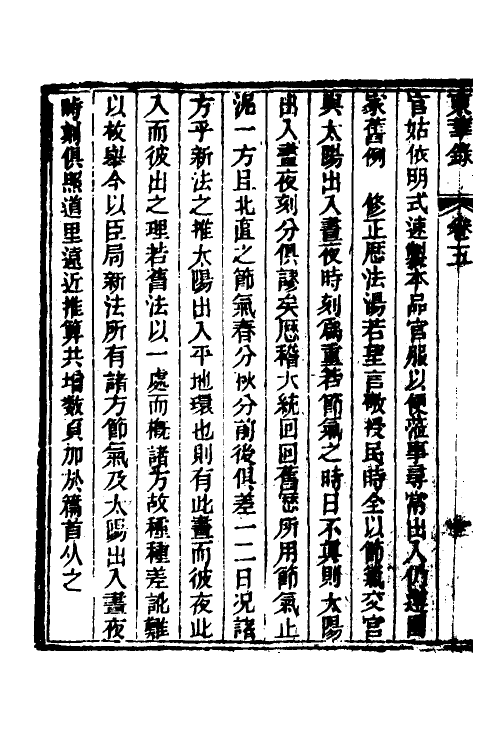 東華錄 卷五
官姑依明式速製本品官服以便蒞事尋常出入仍遵國
家舊例 修正厯法湯若望言敬授民時全以節氣交宮
與太陽出入晝夜時刻爲重若節氣之時日不眞則太陽
出入晝夜刻分俱謬矣厯稽大統回回舊厯所用節氣止
泥一方且北直之節氣春分秋分前後俱差一二日况諸
方乎新法之推太陽出入乎地環也則有此晝而彼夜此
入而彼出之理若舊法以一處而槪諸方故種種差訛難
以枚舉今以臣局新法所有諸方節氣及太陽出入晝夜
時刻俱照道里遠近推算共增數頁加於篇首從之